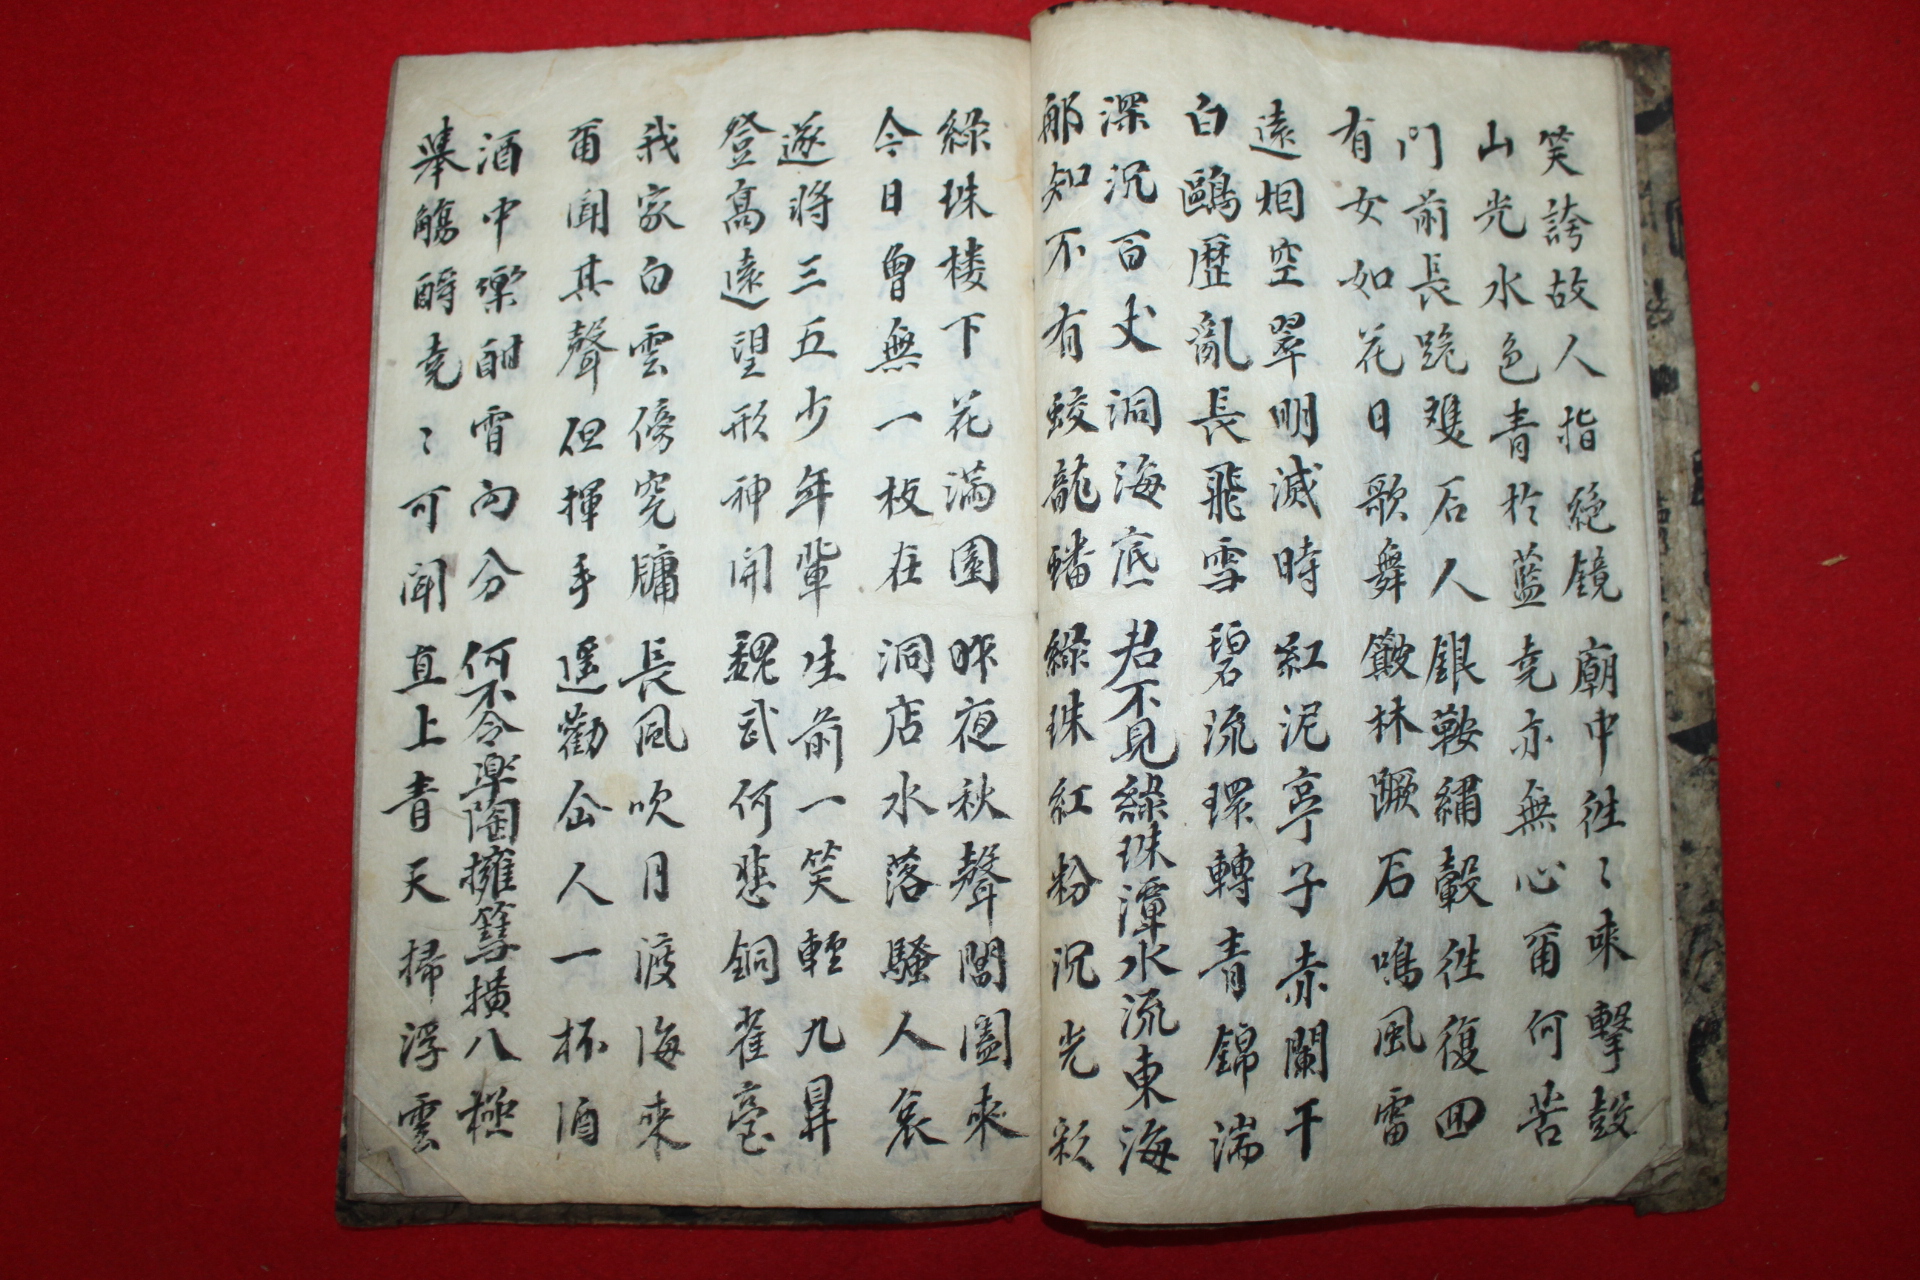 笑誇故人指絶鏡廟中徃〻來擊鼓
山光水色青於藍堯亦無心爾何苦
門前長跪雙石人銀鞍繡轂徃復回
有女如花日歌舞簸林蹶石鳴風雷
遠烟空翠明滅時紅泥亭子赤闌干
白鷗歷亂長飛雪碧流環轉青錦湍
深沉百丈洞海底君不見綠珠潭水流東海
那知不有蛟龍蟠綠珠紅粉沉光彩
綠珠楼下花滿園昨夜秋聲閶闔來
今日曾無一枝在洞店水落騷人哀
遂將三五少年輩生前一笑輕九鼎
登髙遠望形神開魏武何悲銅雀臺
我家白雲傍究牗長風吹月渡海來
爾聞其聲但揮手遥勸仚人一杯酒
酒中樂酣宵向分何不令皐陶擁篲橫八極
舉觴酹堯〻可聞直上青天掃浮雲